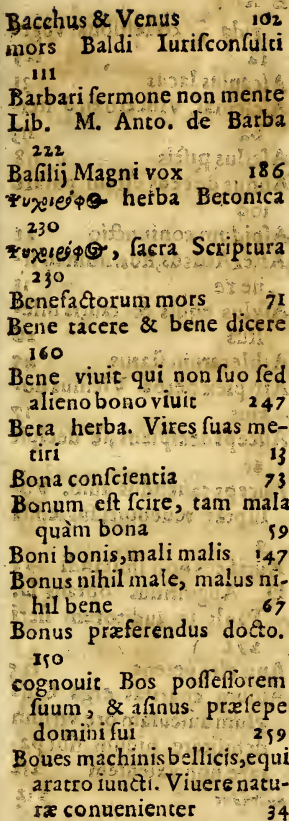 Bacchus & Venus 102
mors Baldi Iuriſconſulti
111
Barbari ſermone non mente
Lib. M. Anto. de Barba
222
Baſilij Magni vox 186
herba Betonica
230
, ſacra Scriptura
230
Benefactorum mors 71
Bene tacere & bene dicere
160
Bene viuit qui non ſuo ſed
alieno bono viuit 247
Beta herba. Vires ſuas me-
tiri 13
Bona conſcientia 73
Bonum eſt ſcire, tam mala
quàm bona 59
Boni bonis, mali malis 147
Bonus nihil male, malus ni-
hil bene 67
Bonus præferendus docto.
150
cognouit Bos poſſeſſorem
ſuum, & aſinus præſepe
domini ſui 259
Boues machinis bellicis, equi
aratro iuncti. Viuere natu-
ræ conuenienter 34